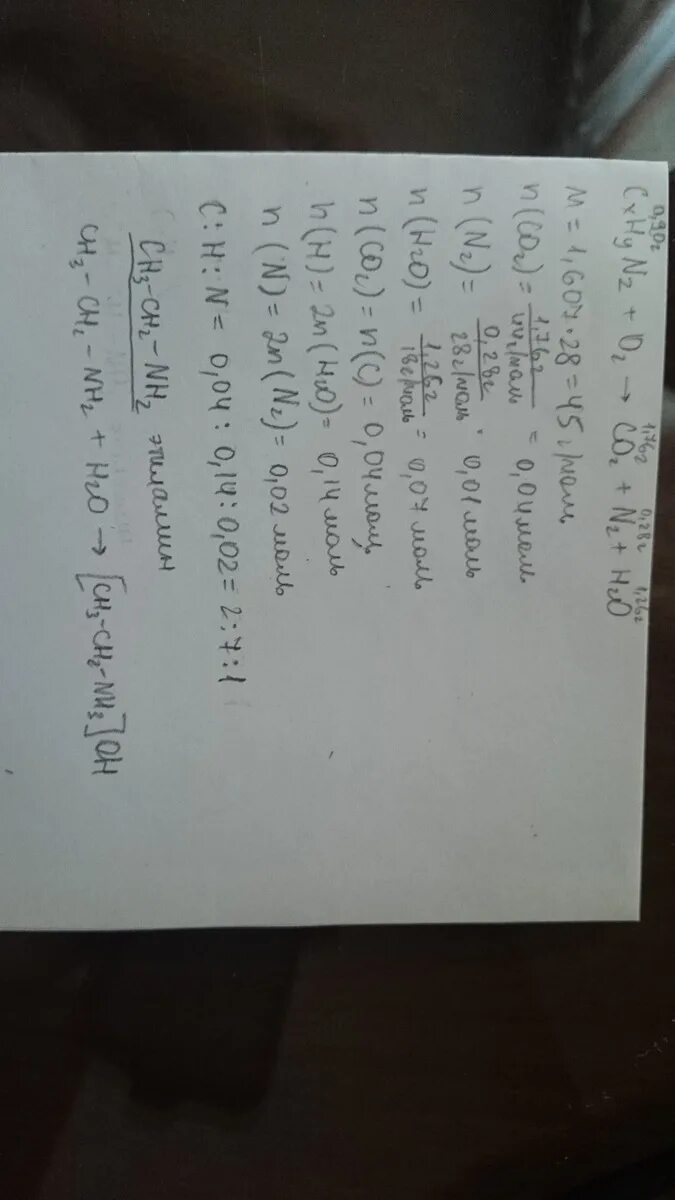 0,90г 1,76г 0,28г 1,26г
CxHyNz + O2 → CO2 + N2 + H2O
M = 1,607·28 = 45 г/моль
n(CO2) = 1,76г / 44г/моль = 0,04моль
n(N2) = 0,28г / 28г/моль · 0,01моль
n(H2O) = 1,26г / 18г/моль = 0,07моль
n(CO2) = n(C) = 0,04моль
n(H) = 2n(H2O) = 0,14моль
n(N) = 2n(N2) = 0,02 моль
C:H:N = 0,04:0,14:0,02 = 2:7:1
CH3-CH2-NH2 этиламин
CH3-CH2-NH2 + H2O → [CH3-CH2-NH3]OH